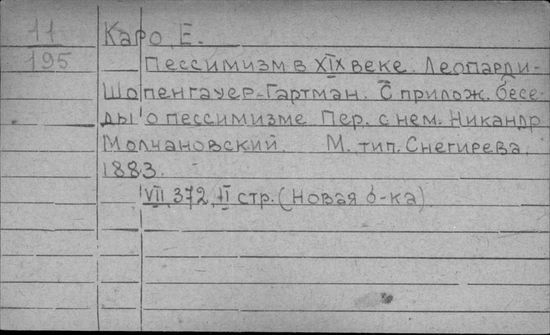 11
195
Каро, Е.
Пессимизм в XIX веке. Леопарди-
Шопенгауер-Гартман. С прилож. бесе-
ды о пессимизме Пер. с нем. Никандр
Молчановский. М. тип. Снегирева.
1883.
VII, 372, II стр. (Новая б-ка)